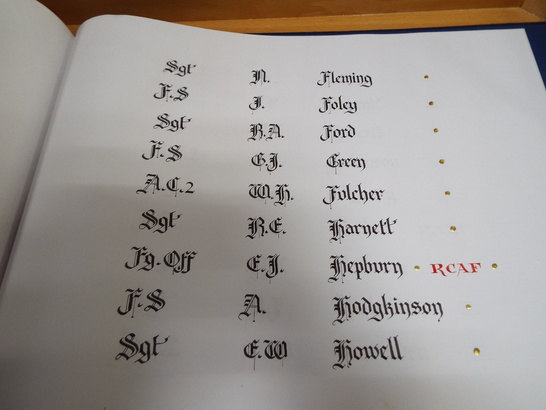 Sgt N. Fleming
F.S J. Foley
Sgt R.A. Ford
F.S G.J. Green
A.C.2 W.H. Fulcher
Sgt R.E. Harnett
Fg. Off E.J. Hepburn RCAF
F.S A. Hodgkinson
Sgt E.W Howell